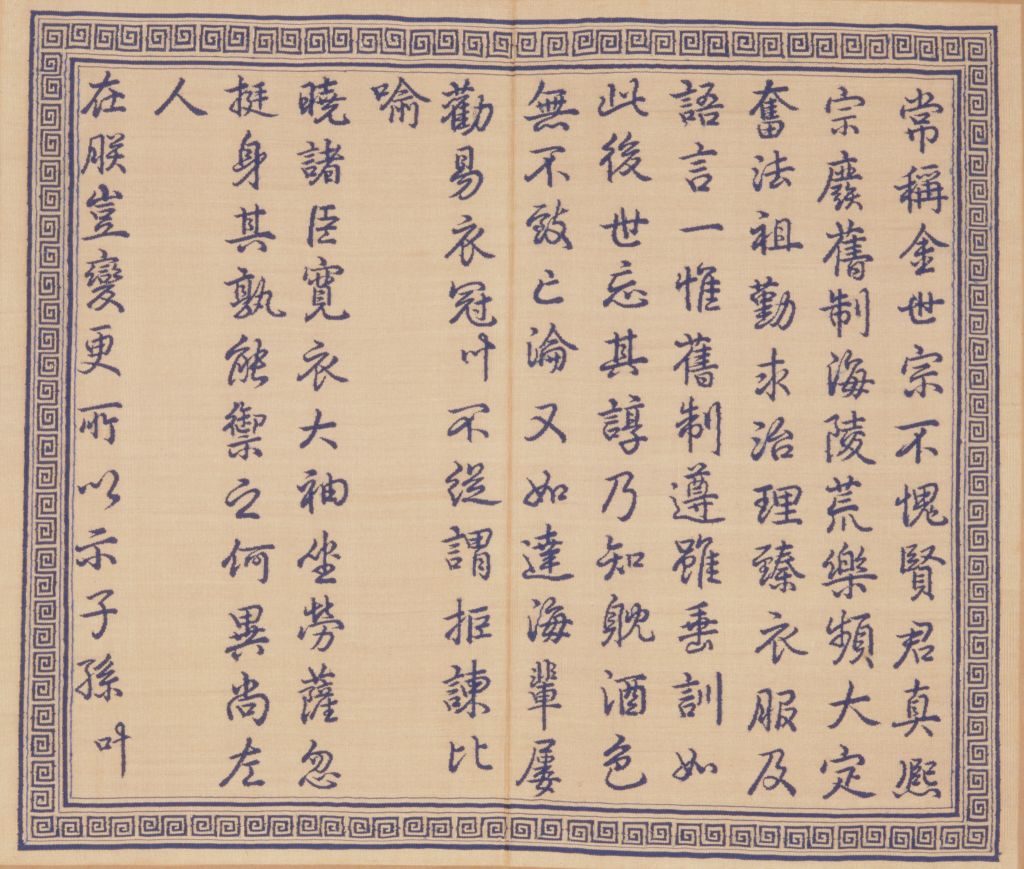 常稱金世宗不愧賢君真熈
宗廢舊制海陵荒樂頻大定
奮法祖勤求治理臻衣服及
語言一惟舊制遵雖垂訓如
此後世忘其諄乃知躭酒色
無不致亡淪又如達海輩屢
勸易衣冠叶不從謂拒諫比
喻
曉諸臣寬衣大袖坐勞薩忽
挺身其孰能禦之何異尚左
人
在朕豈變更所以示子孫叶